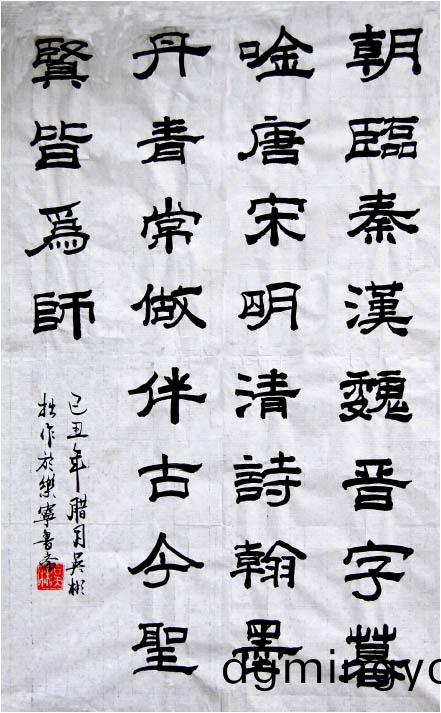 朝臨秦漢魏晋字暮
唫唐宋明清詩翰墨
丹青常做伴古今聖
賢皆爲師
己丑年腊月吴彬
拙作於樂寧書斋
dgmingyo